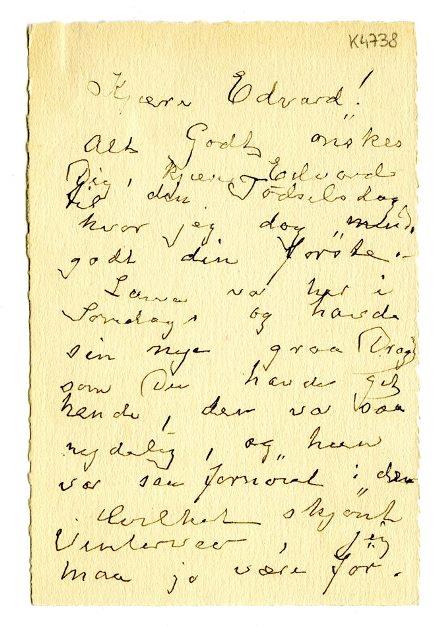 K4738
Kjære Edvard!
Alt Godt önskes
Dig, kjære Edvard
til din Födselsdag
hvor jeg dog mindes
godt din förste.–
Laura va her i
Söndags og havde
sin nye graa Dragt
som Du havde git
hende, den va saa
nydelig, og hun
var saa fornöiet i den
Hvilket skjönt
Vinterveir, jeg
maa jo være for.